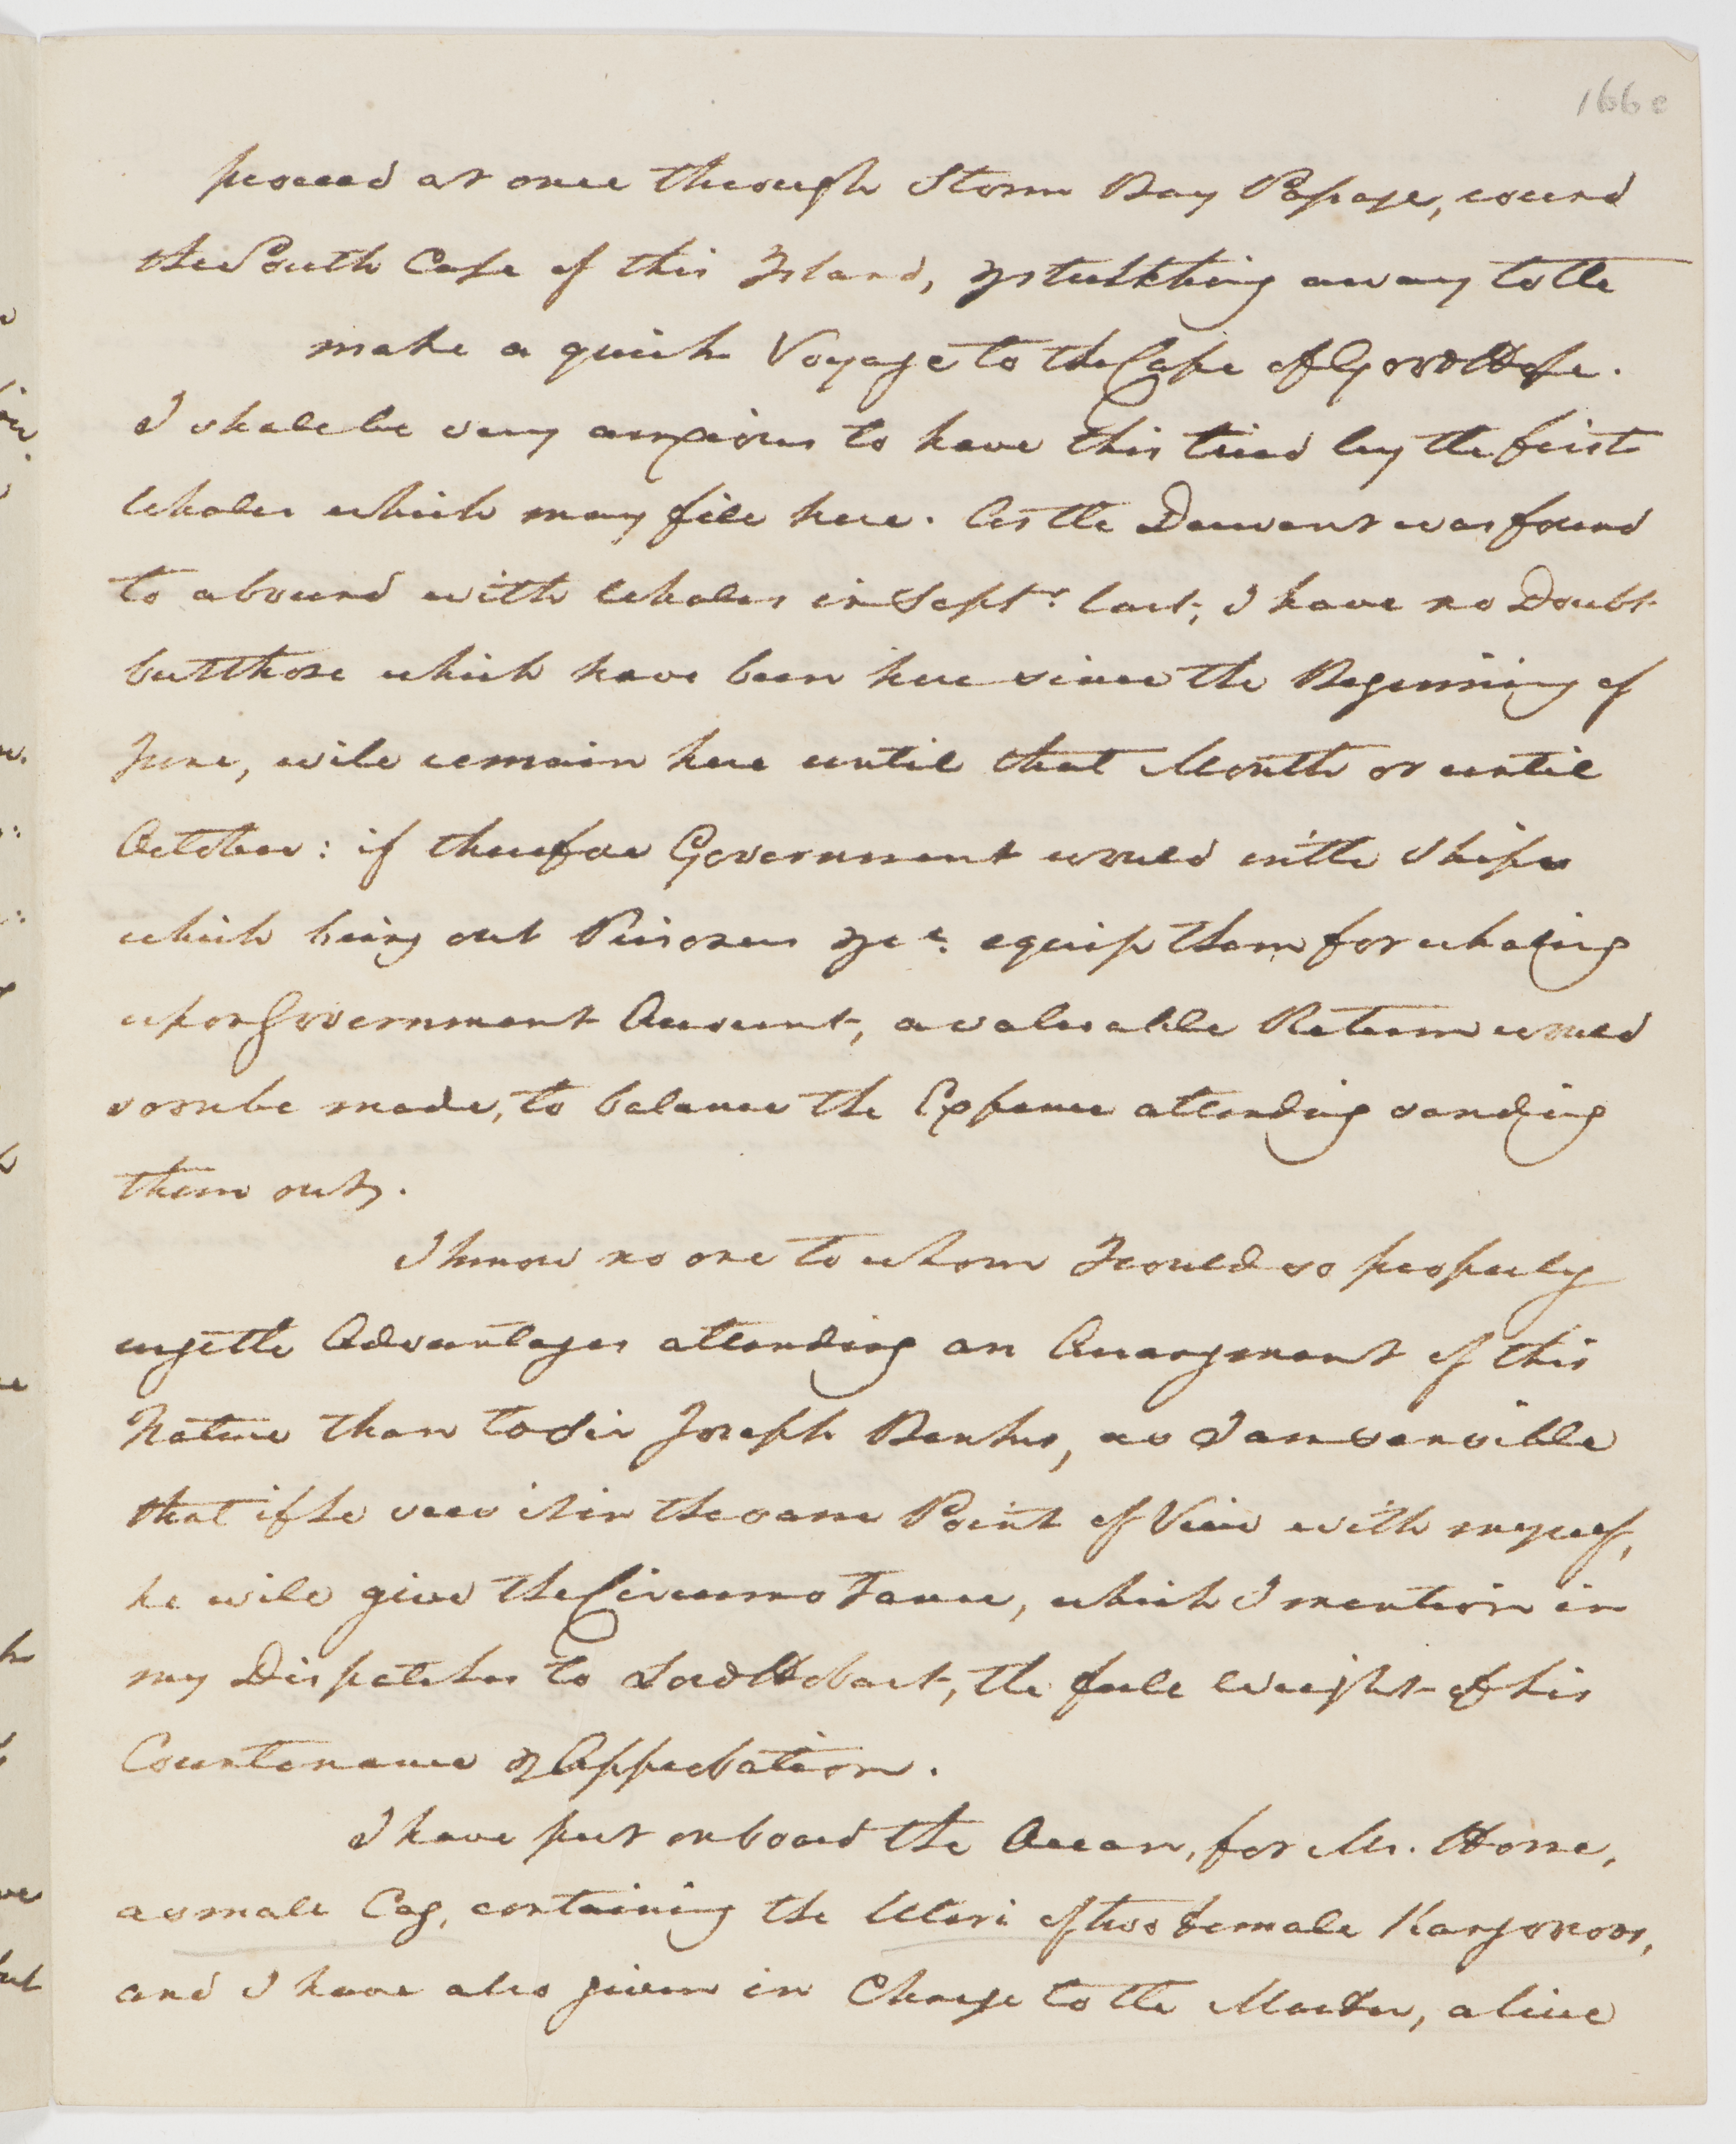 166 e
proceed at once through Storm Bay Passage, round
the South Cape of this Island, & away to the
make a quick Voyage to the Cape of Good Hope.
I shall be very anxious to have this tried by the first
Whaler which may fill here. As the Derwent was found
to abound with Whales in Septr. last, I have no Doubt
but those which have been here since the Beginning of
June, will remain here until that Month or until
October: if therefore Government would in the Ships
which bring out Prisoners &c. equip them for whaling
upon Government Account, a valuable Return would
soon be made, to balance the Expence attending sending
them out.
I know no one to whom I could so properly
urge the Advantages attending an Arrangment of this
Nature than to Sir Joseph Banks, as I am sensible
that if he sees it in the same Point of View with myself,
he will give the Circumstance, which I mention in
my Dispatches to Lord Hobart, the full Weight of his
Countenance & Approbation.
I have put on board the Ocean, for Mr. Home,
a small Cag, containing the Uteri of two female Kangooroos,
and I have also given in Charge to the Master, a live